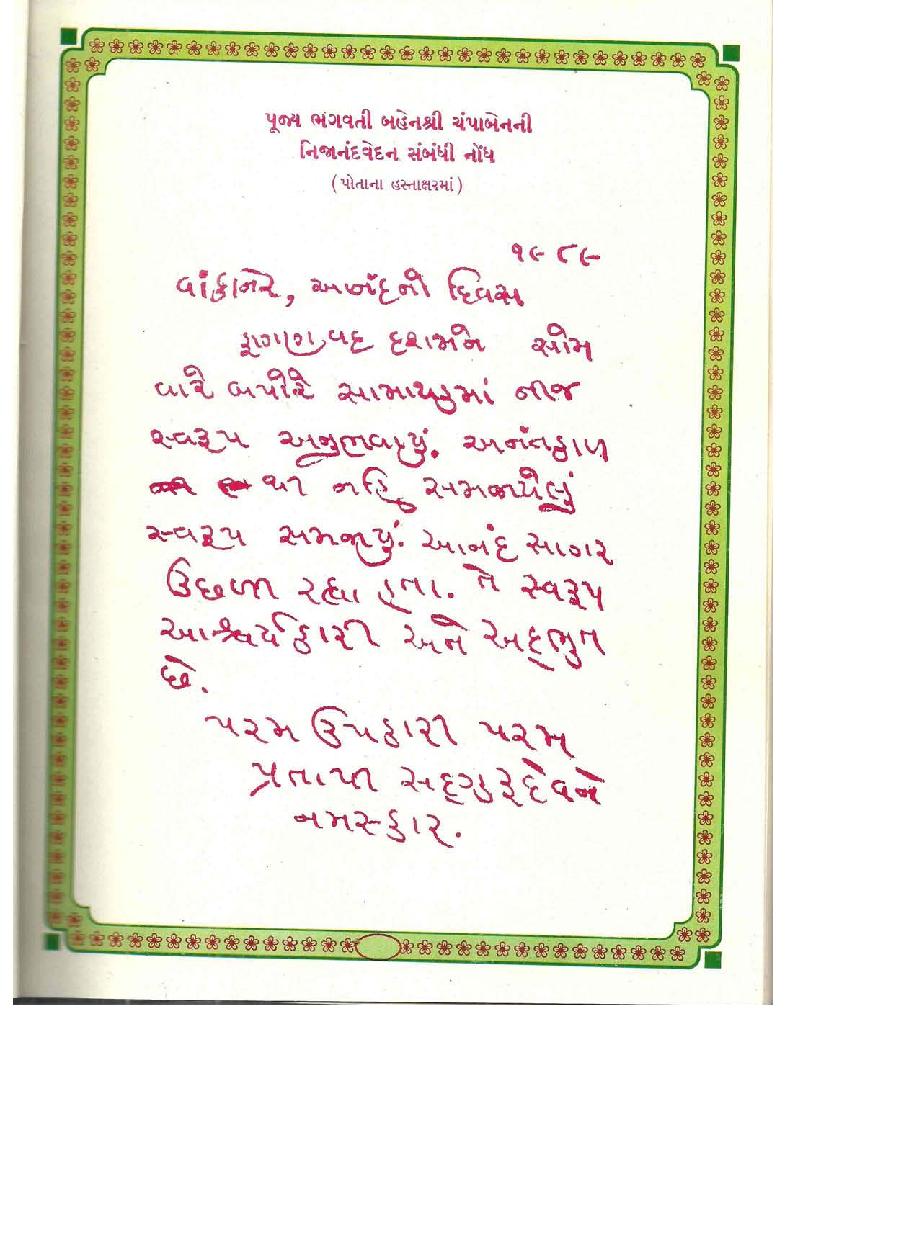 પૂજ્ય ભગવતી બહેનશ્રી ચંપાબેનની
નિજાનંદવેદન સંબંધી નોંધ
(પોતાના હસ્તાક્ષરમાં)
૧૯૮૯
વાંકાનેર, આનંદનો દિવસ
ફાગણ વદ દશમને સોમ
વારે બપોરે સામાયકમાં નીજ
સ્વરૂપ અનુભવાયું. અનંતકાળ
થી નહિ સમજાયેલું
સ્વરૂપ સમજાયું. આનંદ સાગર
ઉછળી રહ્યા હતા. તે સ્વરૂપ
આશ્ચર્યકારી અને અદ્ભુત
છે.
પરમ ઉપકારી પરમ
પ્રતાપી સદ્ગુરૂદેવને
નમસ્કાર.